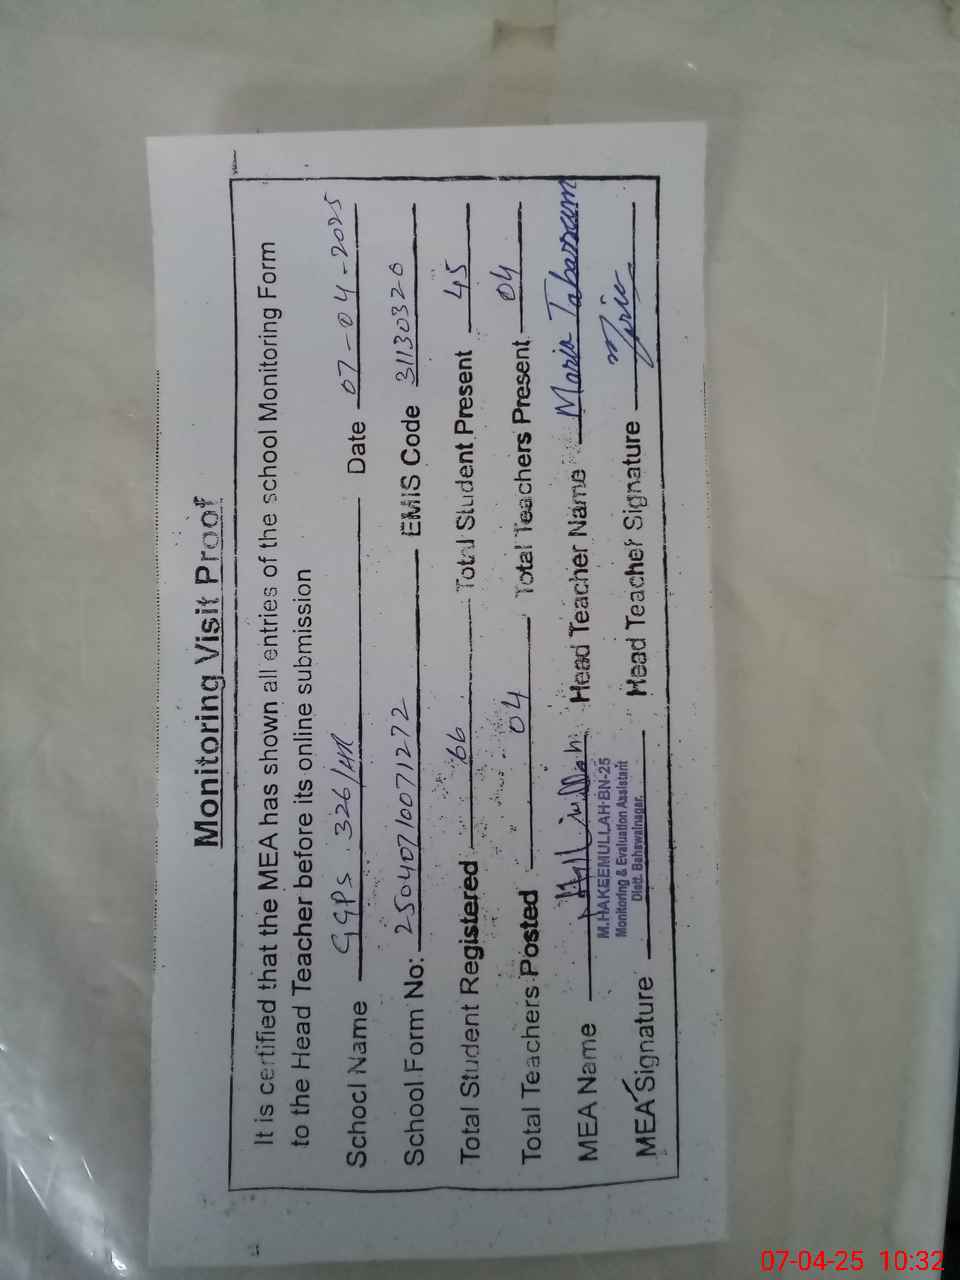 Monitoring Visit Proof
It is certified that the MEA has shown all entries of the school Monitoring Form
to the Head Teacher before its online submission
School Name GGPS 326/HR Date 07-04-2025
School Form No: 25040710071272 EMIS Code 31130320
Total Student Registered 66 Total Student Present 45
Total Teachers Posted 04 Total Teachers Present 04
MEA Name Head Teacher Name Maria Tabassum
M.HAKEEMULLAH-BN-25
Monitoring & Evaluation Assistant
Distt. Bahawalnagar.
MEA Signature Head Teacher Signature
07-04-25 10:32